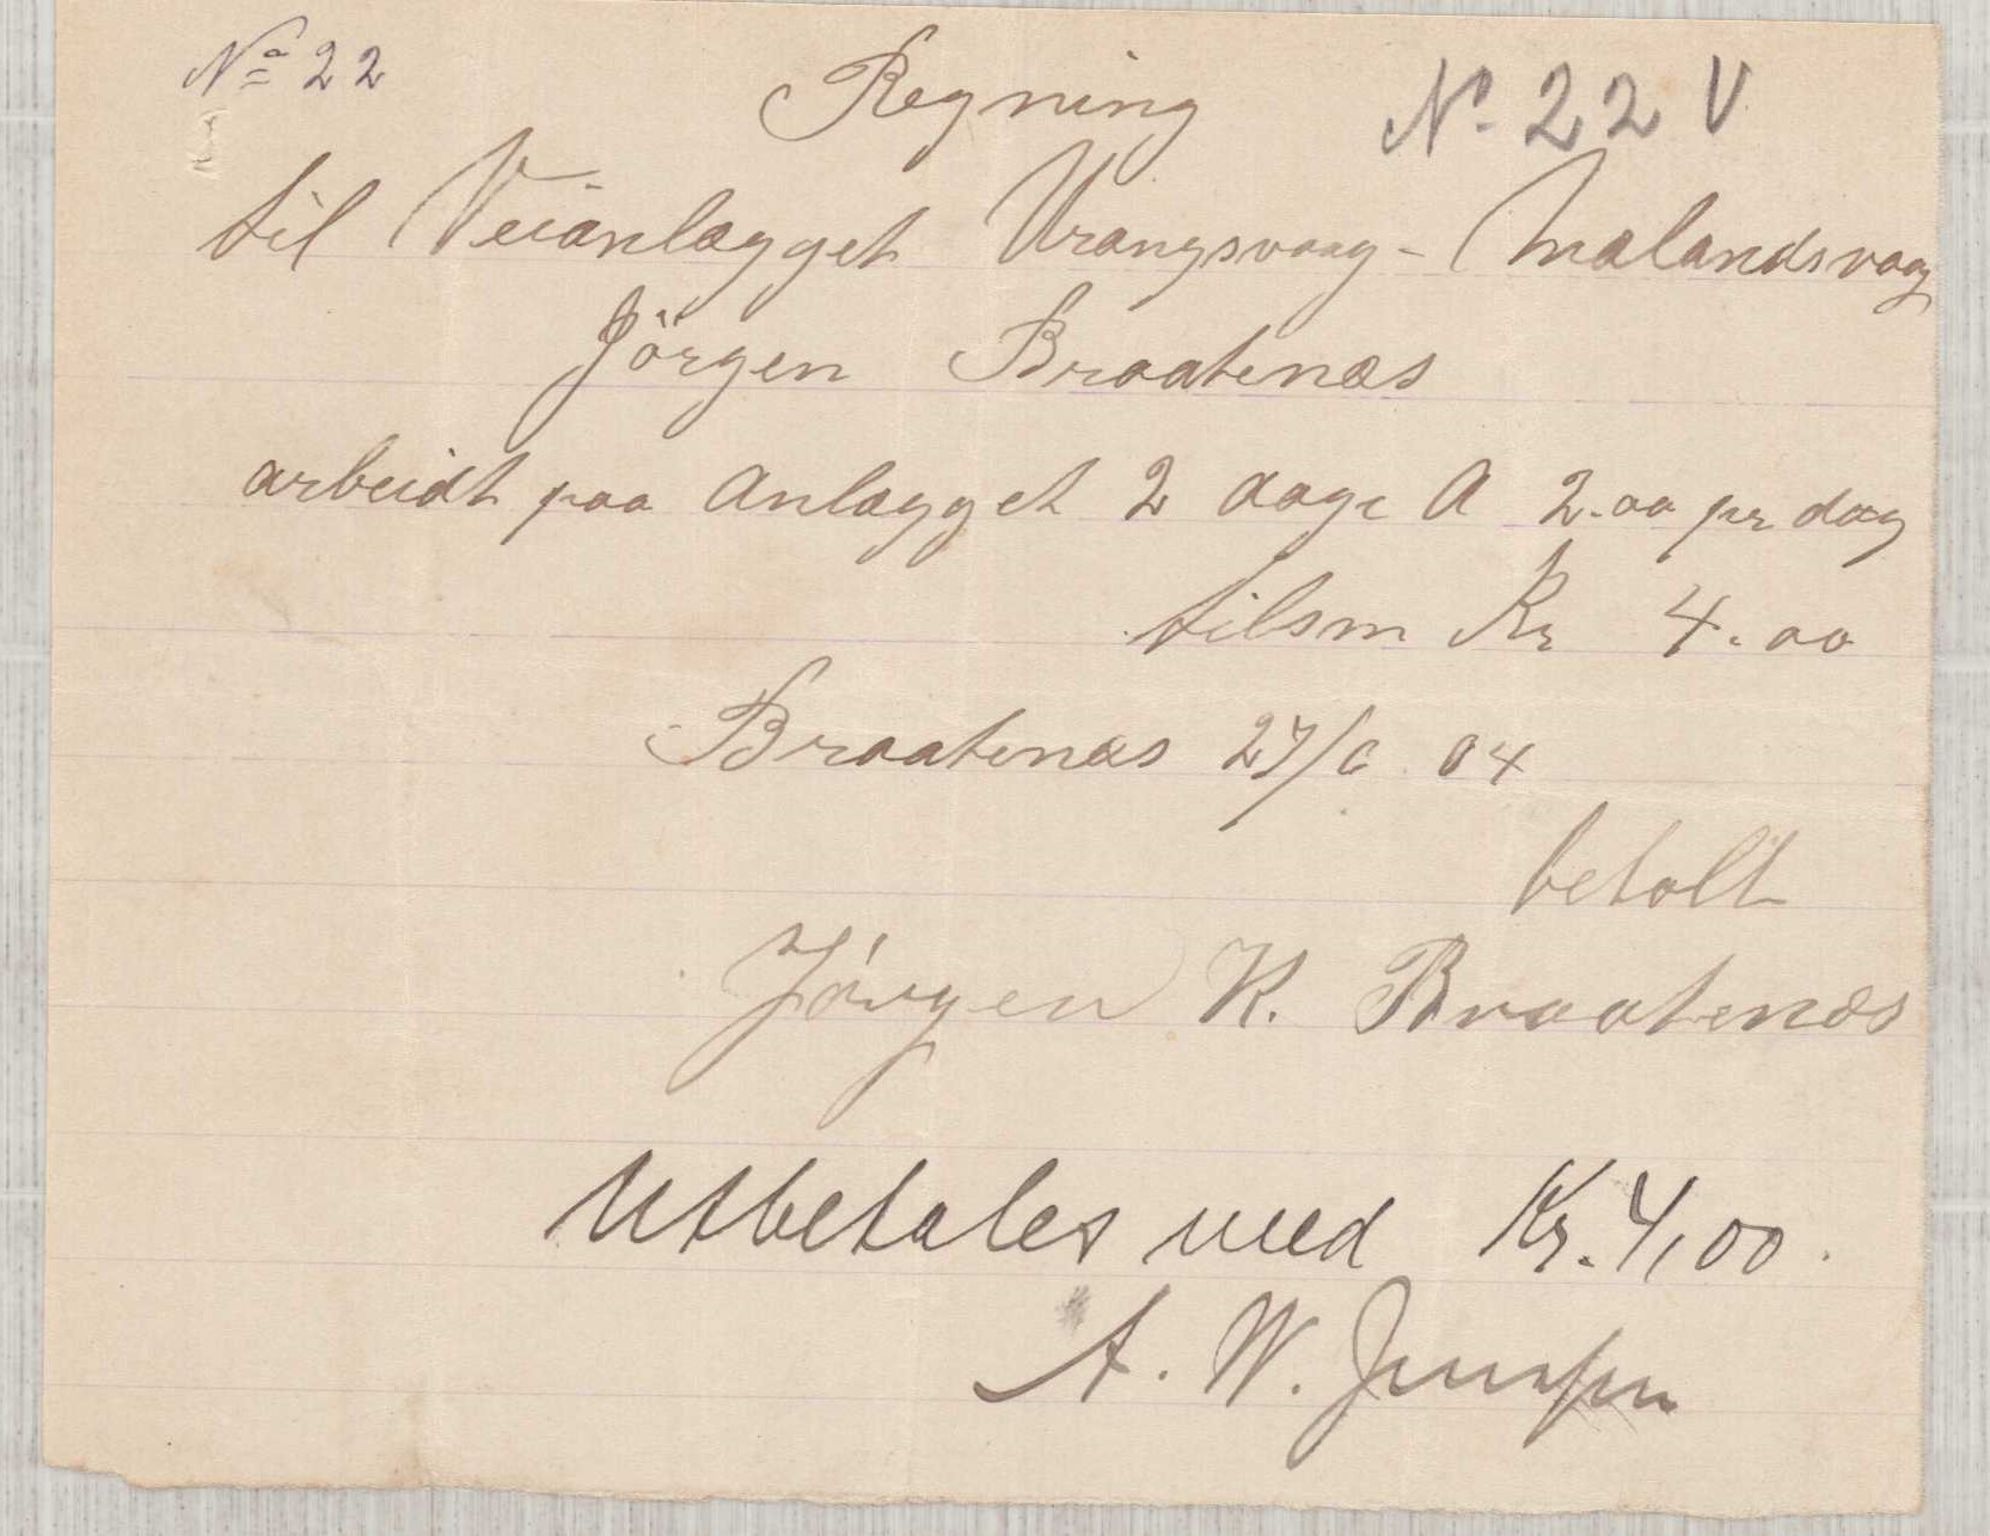 No 22
Regning
No. 22 V
til Veianlægget Vrangsvaag - Malandsvaag
Jörgen Braatenæs
arbeidt paa Anlægget 2 dage A 2.00 pr dag
tilsm Kr 4.00
Braatenæs 27/6 04
betalt
Jörgen K. Braatenæs
Utbetales med Kr. 4,00.
A. W. Jensen